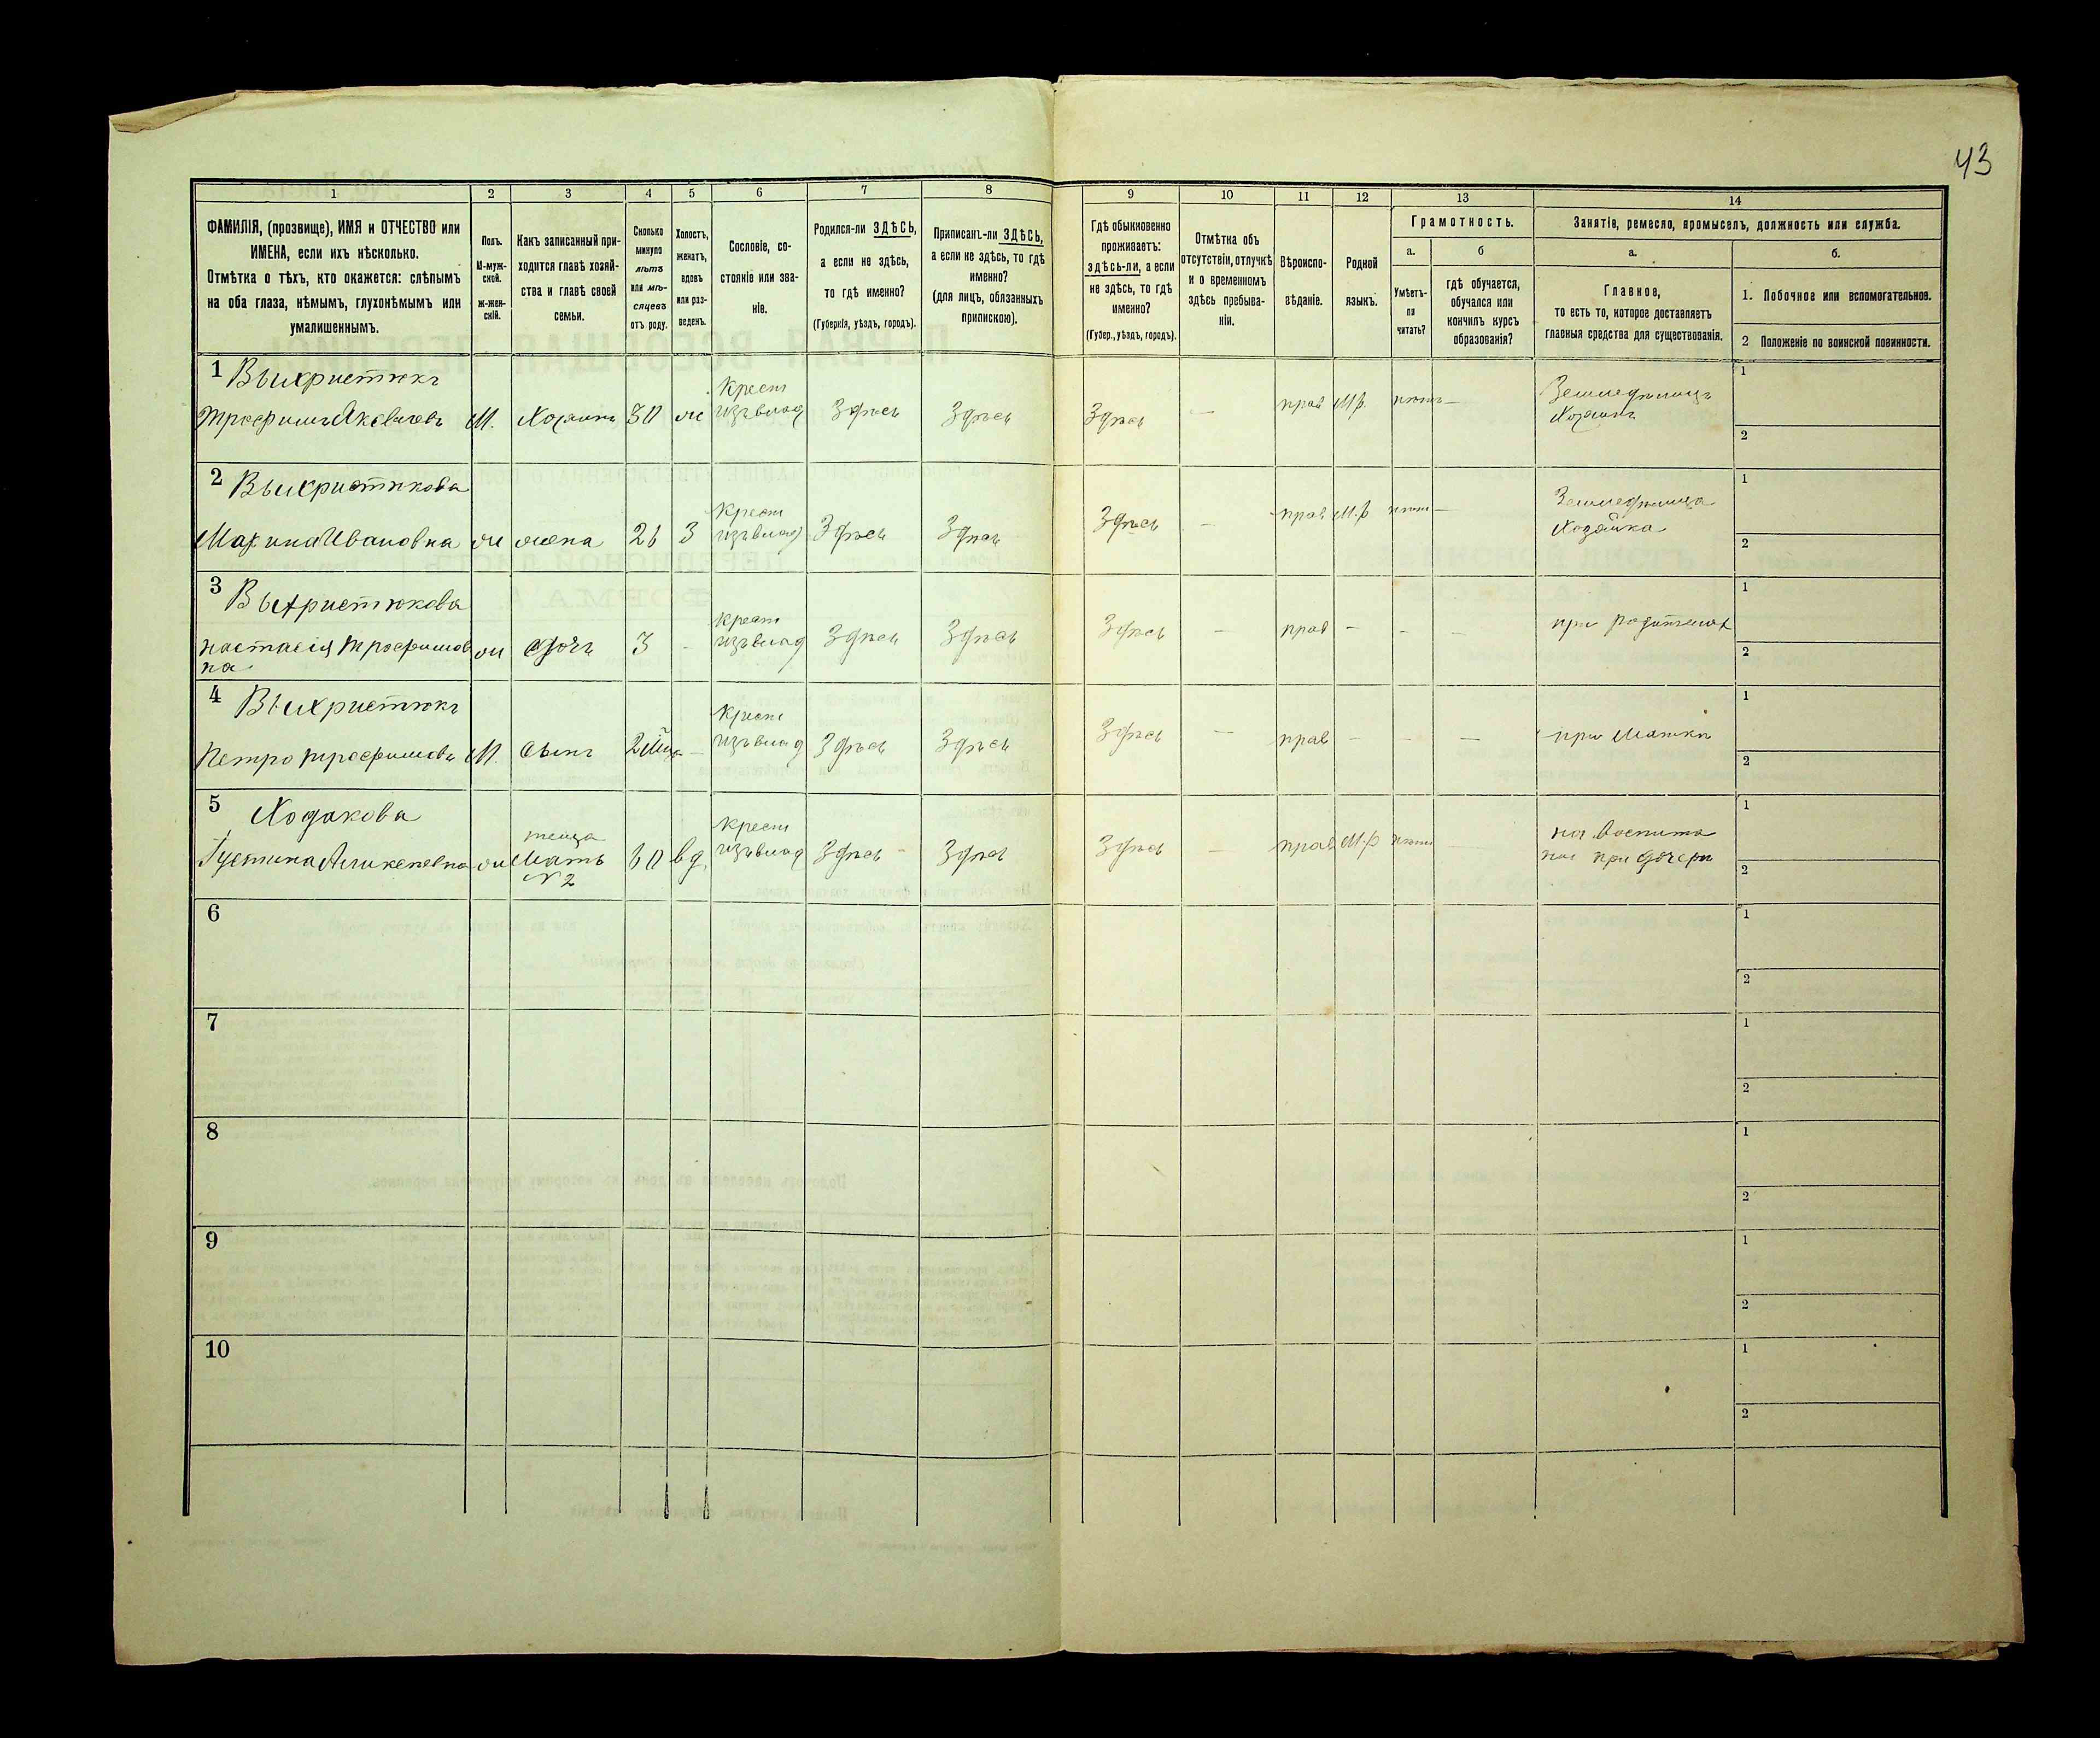 43
1
2
3
4
5
6
7
8
9
10
11
12
13
14
ФАМИЛІЯ, (прозвище), ИМЯ и ОТЧЕСТВО или
ИМЕНА, если ихъ нѣсколько.
Отмѣтка о тѣхъ, кто окажется: слѣпымъ
на оба глаза, нѣмымъ, глухонѣмымъ или
умалишеннымъ.
Полъ.
М-муж-
ской.
Ж-жен-
скій.
Какъ записанный при-
ходится главѣ хозяй-
ства и главѣ своей
семьи.
Сколько
минуло
лѣтъ
или мѣ-
сяцевъ
отъ роду.
Холостъ,
женатъ,
вдовъ
или раз-
веденъ.
Сословіе, со-
стояніе или зва-
ніе.
Родился-ли ЗДѢСЬ,
а если не здѣсь,
то гдѣ именно?
(Губернія, уѣздъ, городъ).
Приписанъ-ли ЗДѢСЬ,
а если не здѣсь, то гдѣ
именно?
(для лицъ, обязанныхъ
припискою).
Гдѣ обыкновенно
проживаетъ:
здѣсь-ли, а если
не здѣсь, то гдѣ
именно?
(Губер., уѣздъ, городъ).
Отмѣтка объ
отсутствіи, отлучкѣ
и о временномъ
здѣсь пребыва-
ніи.
Вѣроиспо-
вѣданіе.
Родной
языкъ.
Грамотность.
а.
Умѣетъ-
ли
читать?
б
гдѣ обучается,
обучался или
кончилъ курсъ
образованія?
Занятіе, ремесло, промыселъ, должность или служба.
а.
Главное,
то есть то, которое доставляетъ
главныя средства для существованія.
б.
1. Побочное или вспомогательное.
2 Положеніе по воинской повинности.
1 Выхристюкъ
Трофимъ Яковлевъ М. Хозяинъ 30 ж Крест изъ влад Здѣсь Здѣсь Здѣсь — прав М.р. нѣтъ — Земледѣлецъ Хозяинъ
1
2
2 Выхристюкова
Марина Ивановна ж жена 26 З Крест изъ влад Здѣсь Здѣсь Здѣсь — прав М.р нѣт — Земледѣлица Хозяйка
1
2
3 Выхристюкова
Настасія Трофимов
на ж дочь 3 - Крест изъ влад Здѣсь Здѣсь Здѣсь — прав - - — при родителях
1
2
4 Выхристюкъ
Петро Трофимовъ М. сынъ 2 Мца — Крест изъ влад Здѣсь Здѣсь Здѣсь — прав - - — при Матки
1
2
5 Ходакова
ж теща Мать N 2 60 вд Крест изъ влад Здѣсь - Здѣсь Здѣсь — прав М.р нѣт на воспита при дочери
1
2
6
1
2
7
1
2
8
1
2
9
1
2
10
1
2